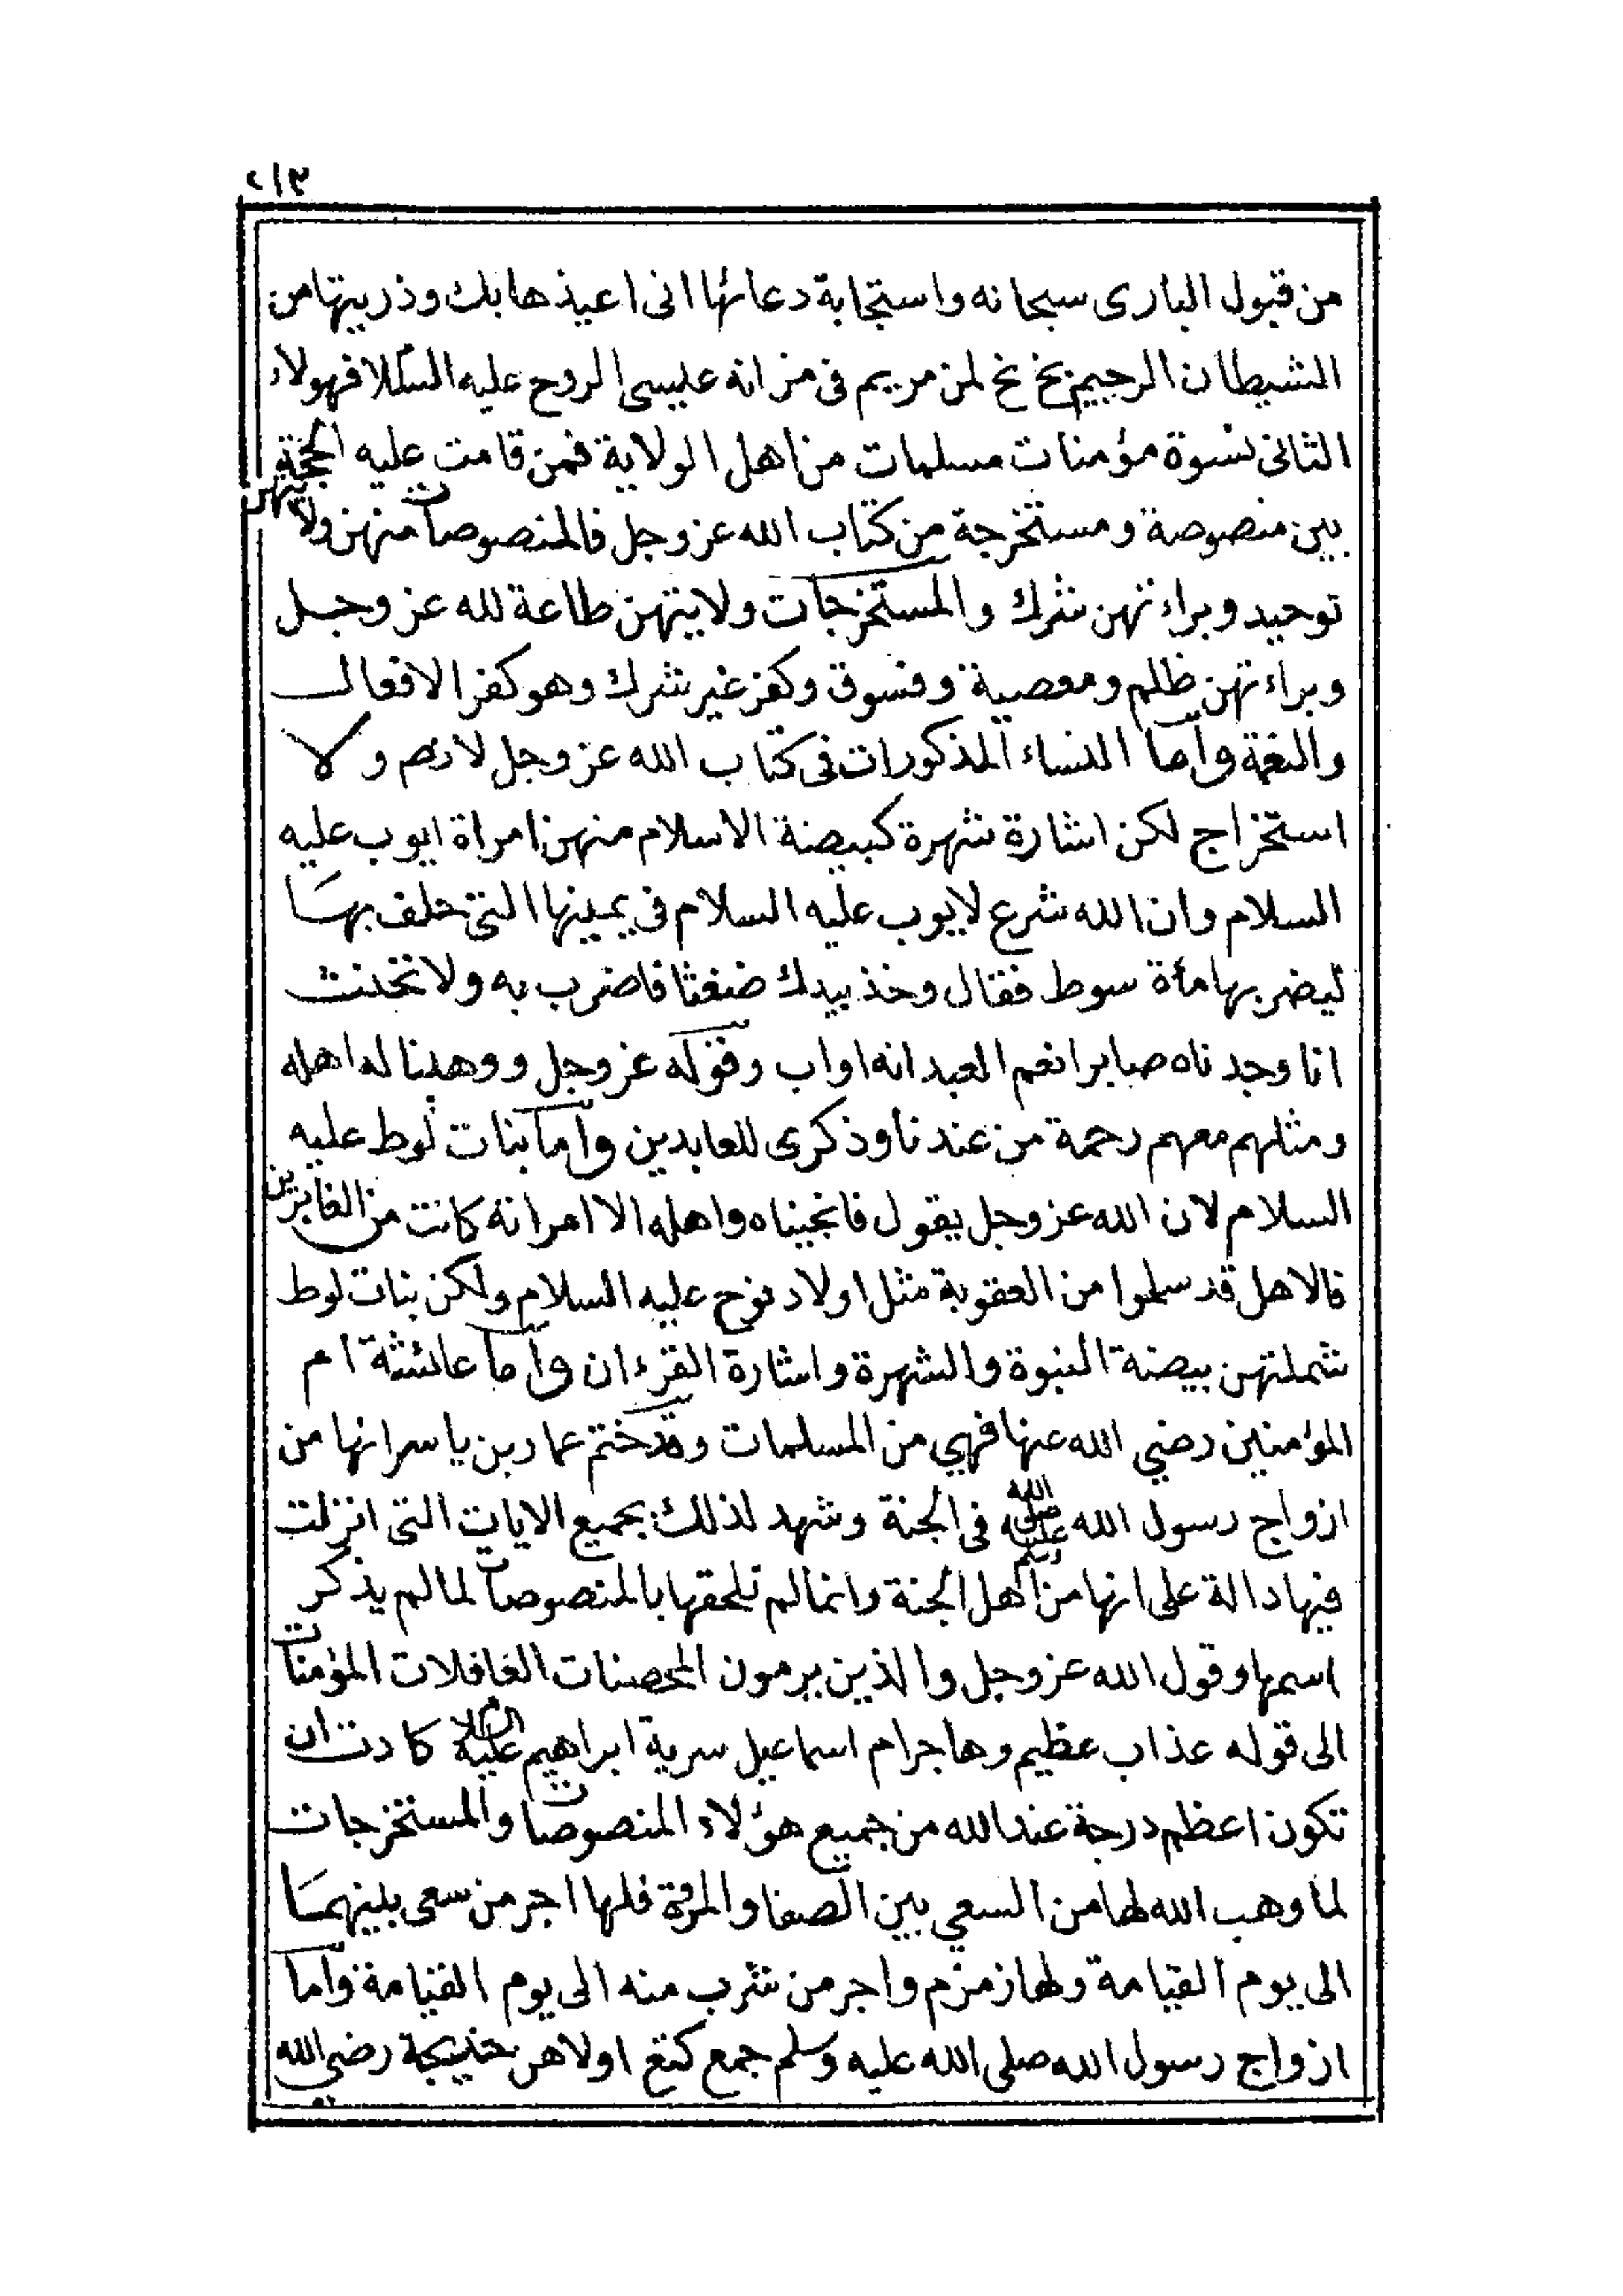 ٢١٣
من قبول البارى سبحانه واستجابة دعائها انى اعيذها بك وذريتها من
الشيطان الرجيم بخ بخ لمن مريم فى مزانه عيسى الروح عليه السلام فهولاء
الثانى نسوة مؤمنات مسلمات من اهل الولاية فمن قامت عليه الحجة
بين منصوصة ومستخرجة من كتاب الله عز وجل فالمنصوصات منهن ولايتهن
توحيد وبراءتهن شرك والمستخرجات ولايتهن طاعة لله عز وجل
وبراءتهن ظلم ومعصية وفسوق وكفر غير شرك وهو كفر الافعال
والنعمة واما النساء المذكورات فى كتاب الله عز وجل لا بنص ولا
استخراج لكن اشارة شهرة كبيضة الاسلام منهن امراة ايوب عليه
السلام وان الله شرع لايوب عليه السلام فى يمينها التى حلف بها
ليضربها مأة سوط فقال وخذ بيدك ضغثا فاضرب به ولا تحنث
انا وجدناه صابرا نعم العبد انه اواب وقوله عز وجل ووهبنا له اهله
ومثلهم معهم رحمة من عندنا وذكرى للعابدين واما بنات لوط عليه
السلام لان الله عز وجل يقول فانجيناه واهله الا امراته كانت من الغابرين
فالاهل قد سلموا من العقوبة مثل اولاد نوح عليه السلام ولكن بنات لوط
شملتهن بيضة النبوة والشهرة واشارة القرءان واما عائشة ام
المؤمنين رضي الله عنها فهي من المسلمات وقد ختم عمار بن ياسر انها من
ازواج رسول الله صلى الله عليه وسلم فى الجنة وشهد لذلك بجميع الايات التى انزلت
فيها دالة على انها من اهل الجنة وانما لم نلحقها بالمنصوصات لما لم يذكر
اسمها وقول الله عز وجل والذين يرمون المحصنات الغافلات المؤمنات
الى قوله عذاب عظيم وهاجر ام اسماعيل سرية ابراهيم عليه السلام كادت ان
تكون اعظم درجة عند الله من جميع هؤلاء المنصوصات والمستخرجات
لما وهب الله لها من السعي بين الصفا والمروة فلها اجر من سعى بينهما
الى يوم القيامة ولها زمزم واجر من شرب منه الى يوم القيامة واما
ازواج رسول الله صلى الله عليه وسلم جمع كتع اولاهن خديجة رضي الله